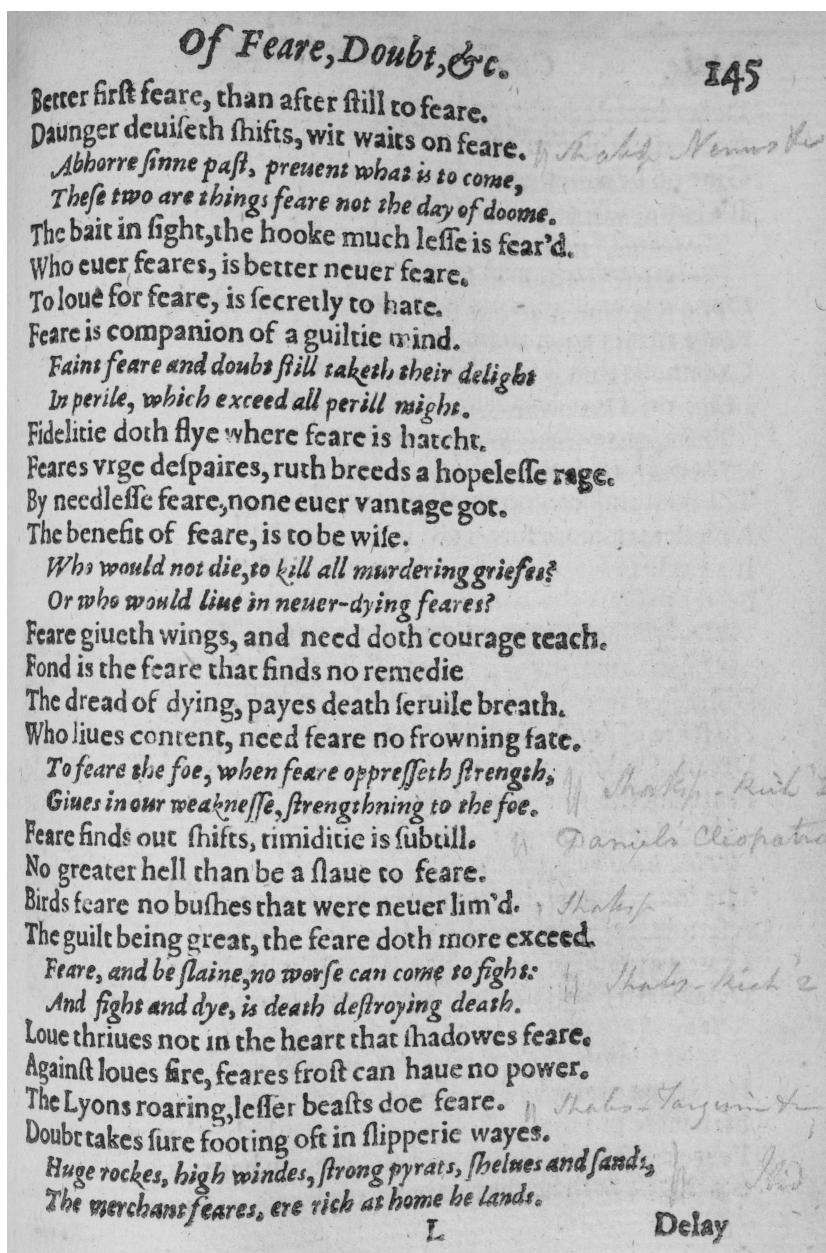 Of Feare, Doubt, &c. 145
Better firſt feare, than after ſtill to feare.
Daunger deuiſeth ſhifts, wit waits on feare.
Abhorre ſinne paſt, preuent what is to come,
Theſe two are things feare not the day of doome.
The bait in ſight, the hooke much leſſe is fear'd.
Who euer feares, is better neuer feare.
To loue for feare, is ſecretly to hate.
Feare is companion of a guiltie mind.
Faint feare and doubt ſtill taketh their delight
In perile, which exceed all perill might.
Fidelitie doth flye where feare is hatcht.
Feares vrge deſpaires, ruth breeds a hopeleſſe rage.
By needleſſe feare, none euer vantage got.
The benefit of feare, is to be wiſe.
Who would not die, to kill all murdering griefes?
Or who would liue in neuer-dying feares?
Feare giueth wings, and need doth courage teach.
Fond is the feare that finds no remedie
The dread of dying, payes death ſeruile breath.
Who liues content, need feare no frowning fate.
To feare the foe, when feare oppreſſeth ſtrength,
Giues in our weakneſſe, ſtrengthning to the foe.
Shaksp - Rich 2
Feare finds out ſhifts, timiditie is ſubtill.
Daniels Cleopatra
No greater hell than be a ſlaue to feare.
Birds feare no buſhes that were neuer lim'd.
Shaksp
The guilt being great, the feare doth more exceed.
Feare, and be ſlaine, no worſe can come to fight:
Shaks - Rich 2
And fight and dye, is death deſtroying death.
Loue thriues not in the heart that ſhadowes feare.
Againſt loues fire, feares froſt can haue no power.
The Lyons roaring, leſſer beaſts doe feare.
Shaks - Tarquin &
Doubt takes ſure footing oft in ſlipperie wayes.
Huge rockes, high windes, ſtrong pyrats, ſhelues and ſands,
Ibid
The merchant feares, ere rich at home he lands.
L Delay